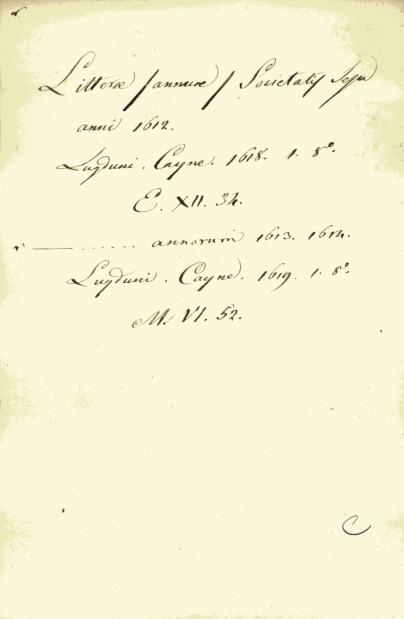 Litterae /annuae/ Societatis Jesu
anni 1612.
Lugduni. Cayne. 1618. 1. 8°.
E. XII. 34.
— ...... annorum 1613. 1614.
Lugduni. Cayne. 1619. 1. 8°.
M. VI. 52.
C